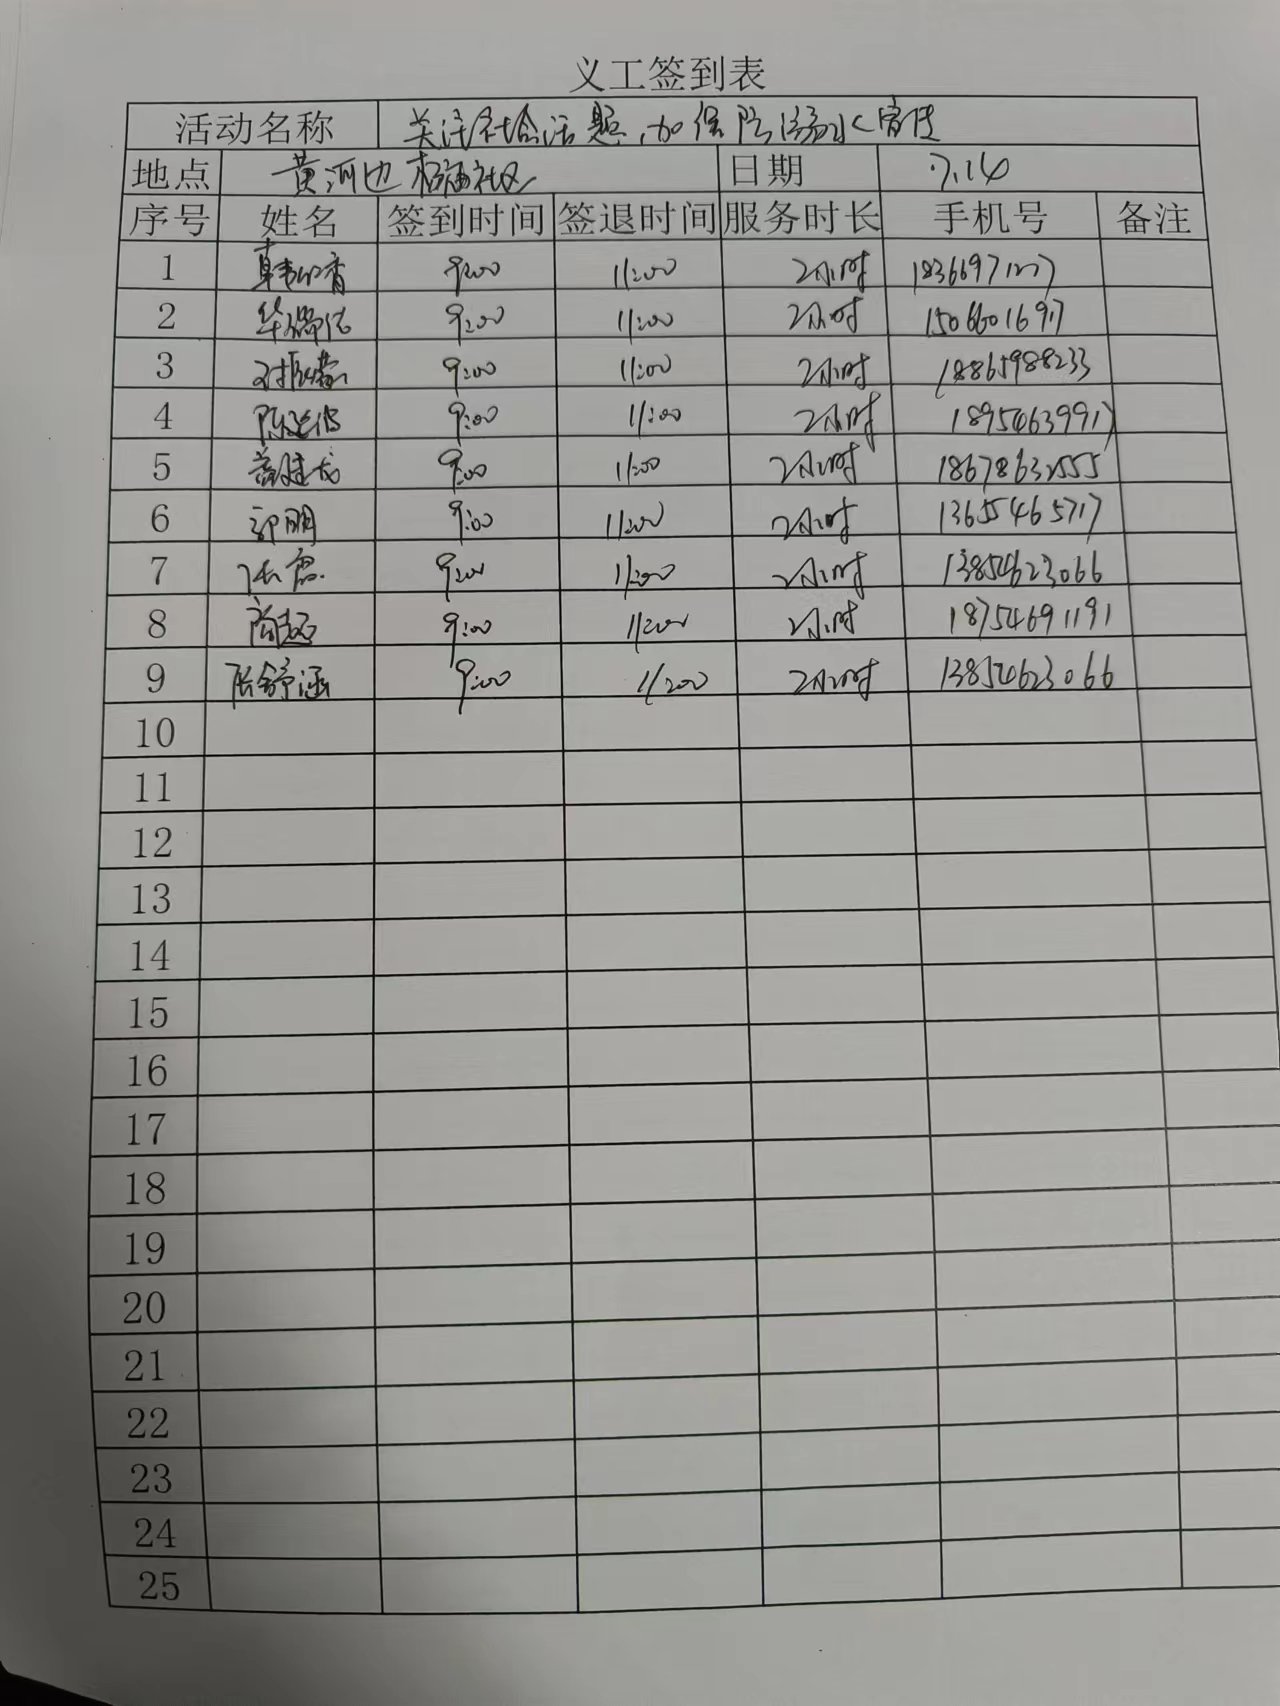 义工签到表
活动名称 关注社会话题,加 防溺水宣传
地点 黄河边 社区 日期 7.14
序号 姓名 签到时间 签退时间 服务时长 手机号 备注
1 9:00 11:00 2小时
2 9:00 11:00 2小时 15066016917
3 9:00 11:00 2小时 18865988233
4 9:00 11:00 2小时 18954639917
5 9:00 11:00 2小时 18678632555
6 郭明 9:00 11:00 2小时 13655465717
7 9:00 11:00 2小时 13854623066
8 9:00 11:00 2小时 18754691191
9 张舒涵 9:00 11:00 2小时 13854623066
10
11
12
13
14
15
16
17
18
19
20
21
22
23
24
25